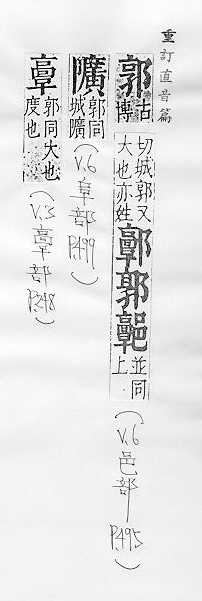 重訂直音篇
郭 古博
切城郭又
大也亦姓
並同
上
(V.6 邑部 P.495)
郭同
城
(V.6 阜部 P.499)
𩫏 郭同大也
度也
(V.3 𩫏部 P.348)